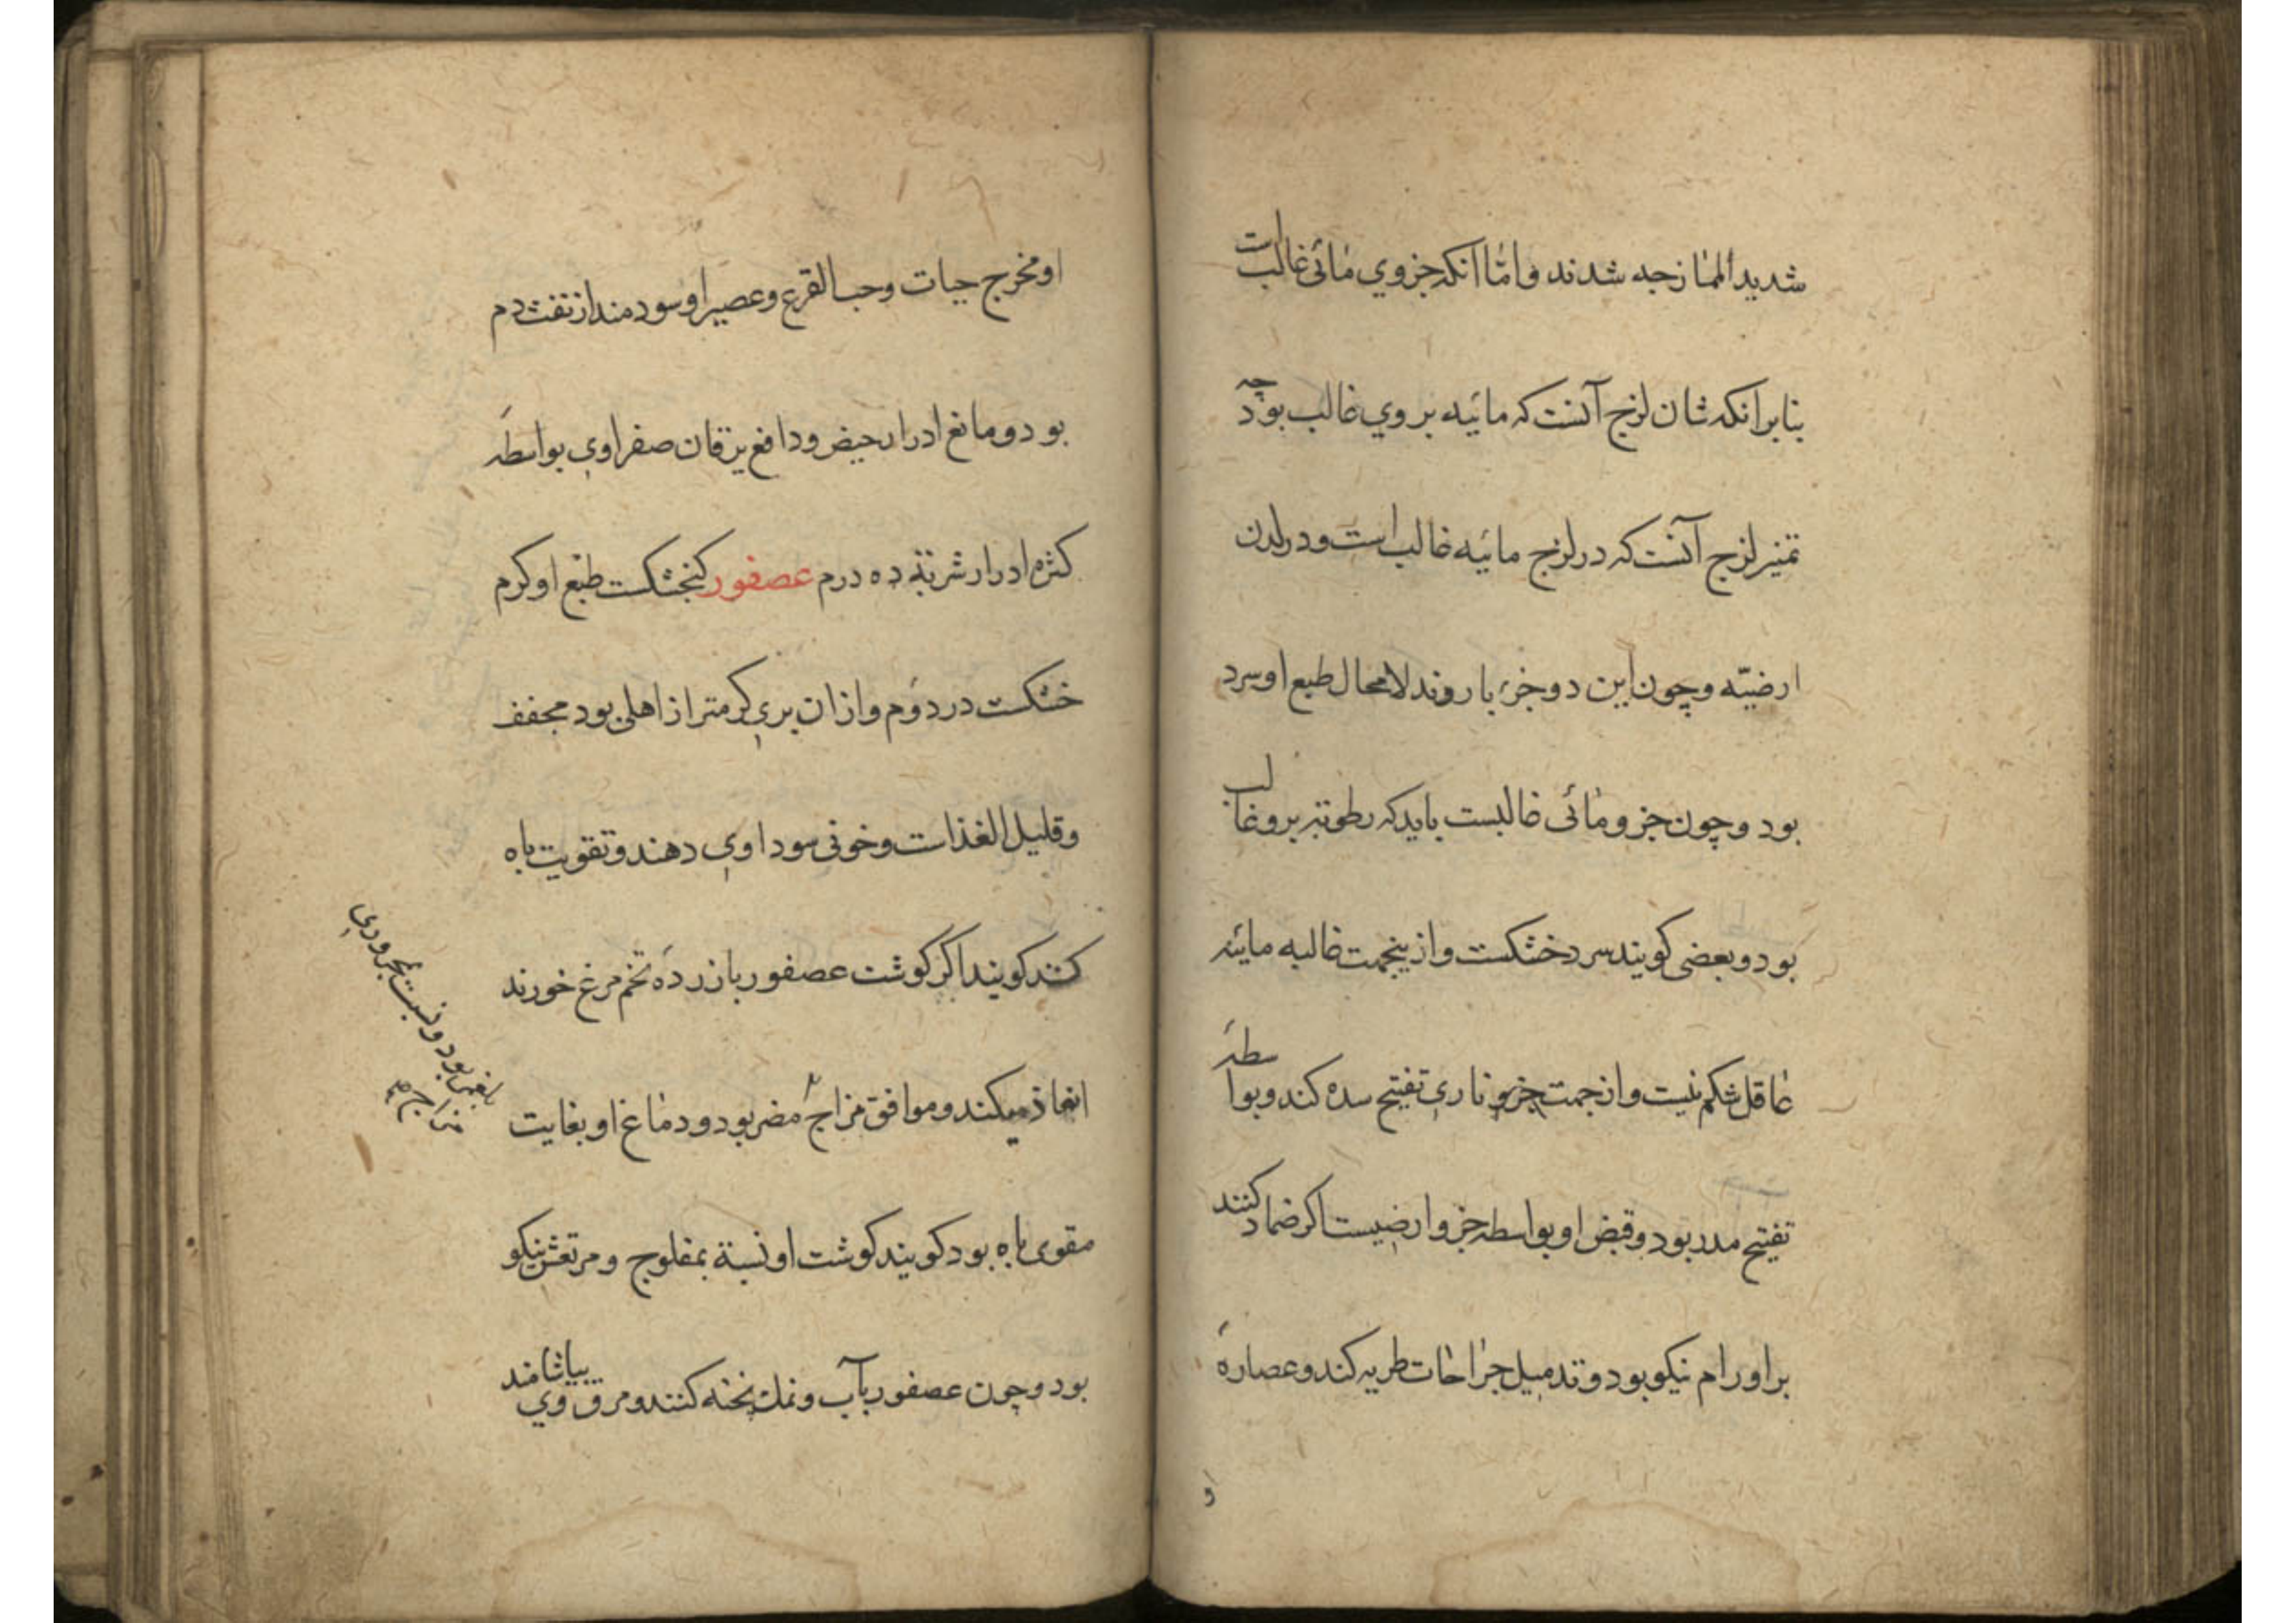 شدید الممازجه شدند و امّا انکه جزوي مائی غالب است
بنابر انکه شان لزج آنست که مائیه بر وي غالب بود چه
تمیز لزج آنست که در لزج مائیه غالب است و در لدن
ارضیّه و چون این دو جزء بارد وند لامحال طبع او سرد
بود و چون جزو مائی غالبست باید که رطوبته برو غالب
بود و بعضی کویند سرد خشکست و ازینجهت غالبه مائیه
عاقل شکم نیست و از جهت جزو ناري تفتیح سده کند و بواسطهٔ
تفتیح مدر بود و قبض او بواسطه جزو ارضیست اکر ضماد کنند
بر اورام نیکو بود و تدمیل جراحات طریه کند و عصارهٔ
او
او مخرج حیات و حب القرع و عصیر او سودمند از نفث دم
بود و مانع ادرار حیض و دافع یرقان صفراوي بواسطهٔ
کثرة ادرار شربتهٔ ده درم عصفور کنجشکست طبع او کرم
خشکست در دوم و ازان بري کرمتر از اهلی بود مجفف
و قلیل الغذاست و خونی سوداوي دهند و تقویت باه
کند کویند اکر کوشت عصفور با زردهٔ تخم مرغ خورند
انعاذ میکند و موافق مزاج مضر بود و دماغ او بغایت
بلغمی بود و نسبت بمحروري
مزاج
مقوی باه بود کویند کوشت او نسبة بمفلوج و مرتعش نیکو
بود و چون عصفور بآب و نمك پخته کنند و مرق وي بیاشامند